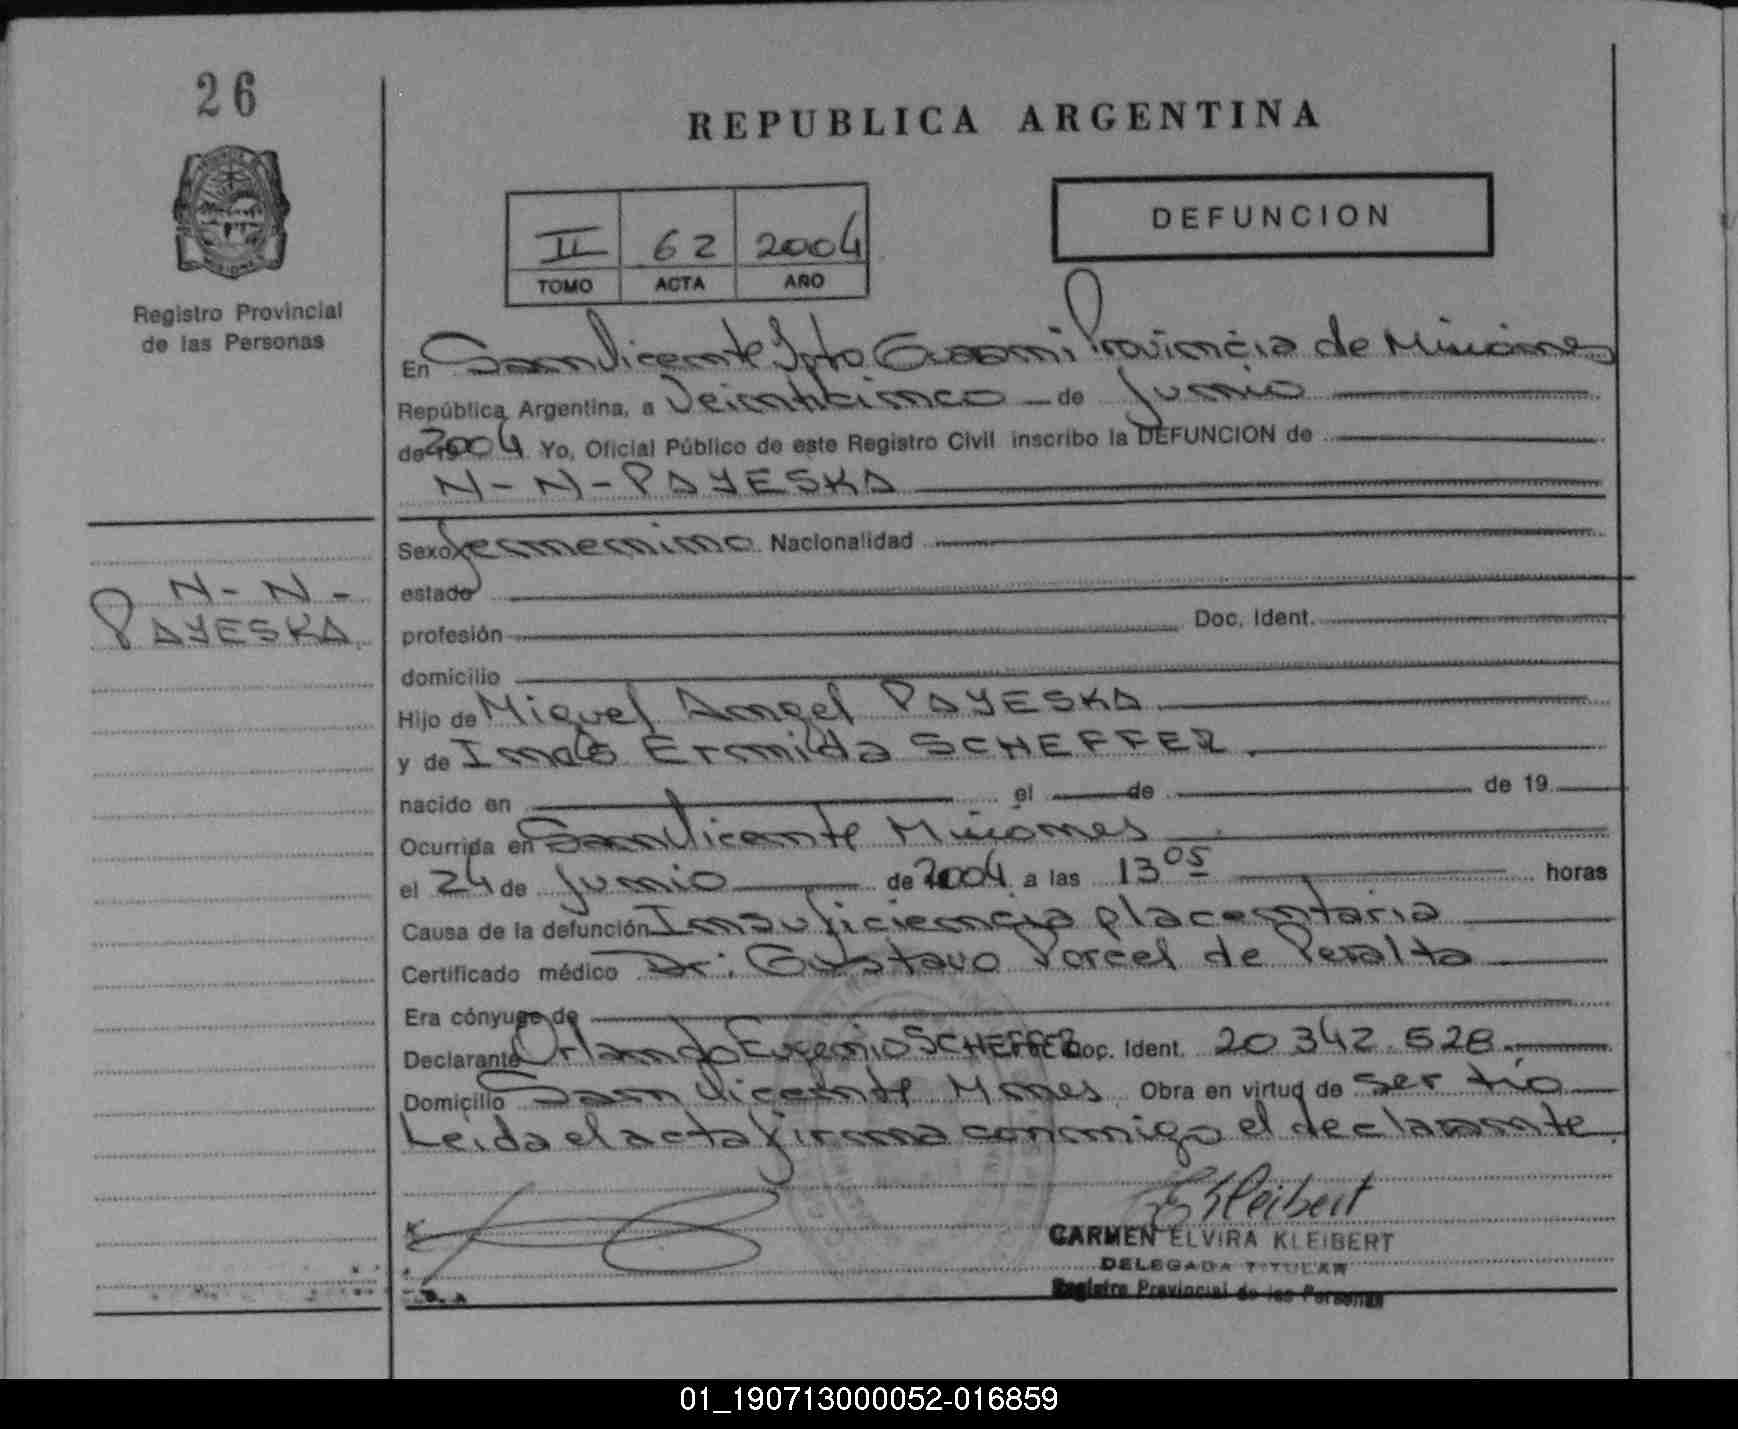 26
REPUBLICA ARGENTINA
II 62 2004
TOMO ACTA AÑO
DEFUNCION
Registro Provincial
de las Personas
En San Vicente Dpto Guaraní Provincia de Misiones
República Argentina, a Veinticinco de Junio
de 2004 Yo, Oficial Público de este Registro Civil inscribo la DEFUNCION de
N-N-PAYESKA
N-N-
PAYESKA
Sexo femenino Nacionalidad
estado
profesión Doc. Ident.
domicilio
Hijo de Miguel Angel PAYESKA
y de Ermilda SCHEFFER
nacido en el de de 19
Ocurrida en San Vicente Misiones
el 24 de Junio de 2004 a las 13 05 horas
Causa de la defunción Insuficiencia placentaria
Certificado médico Dr. Gustavo Porcel de Peralta
Era cónyuge de
Declarante Orlando Eugenio SCHEFFER Doc. Ident. 20 342 528
Domicilio San Vicente Mnes Obra en virtud de ser tío
Leida el acta firma conmigo el declarante
Kleibert
CARMEN ELVIRA KLEIBERT
DELEGADA TITULAR
Registro Provincial de las Personas
01_190713000052-016859